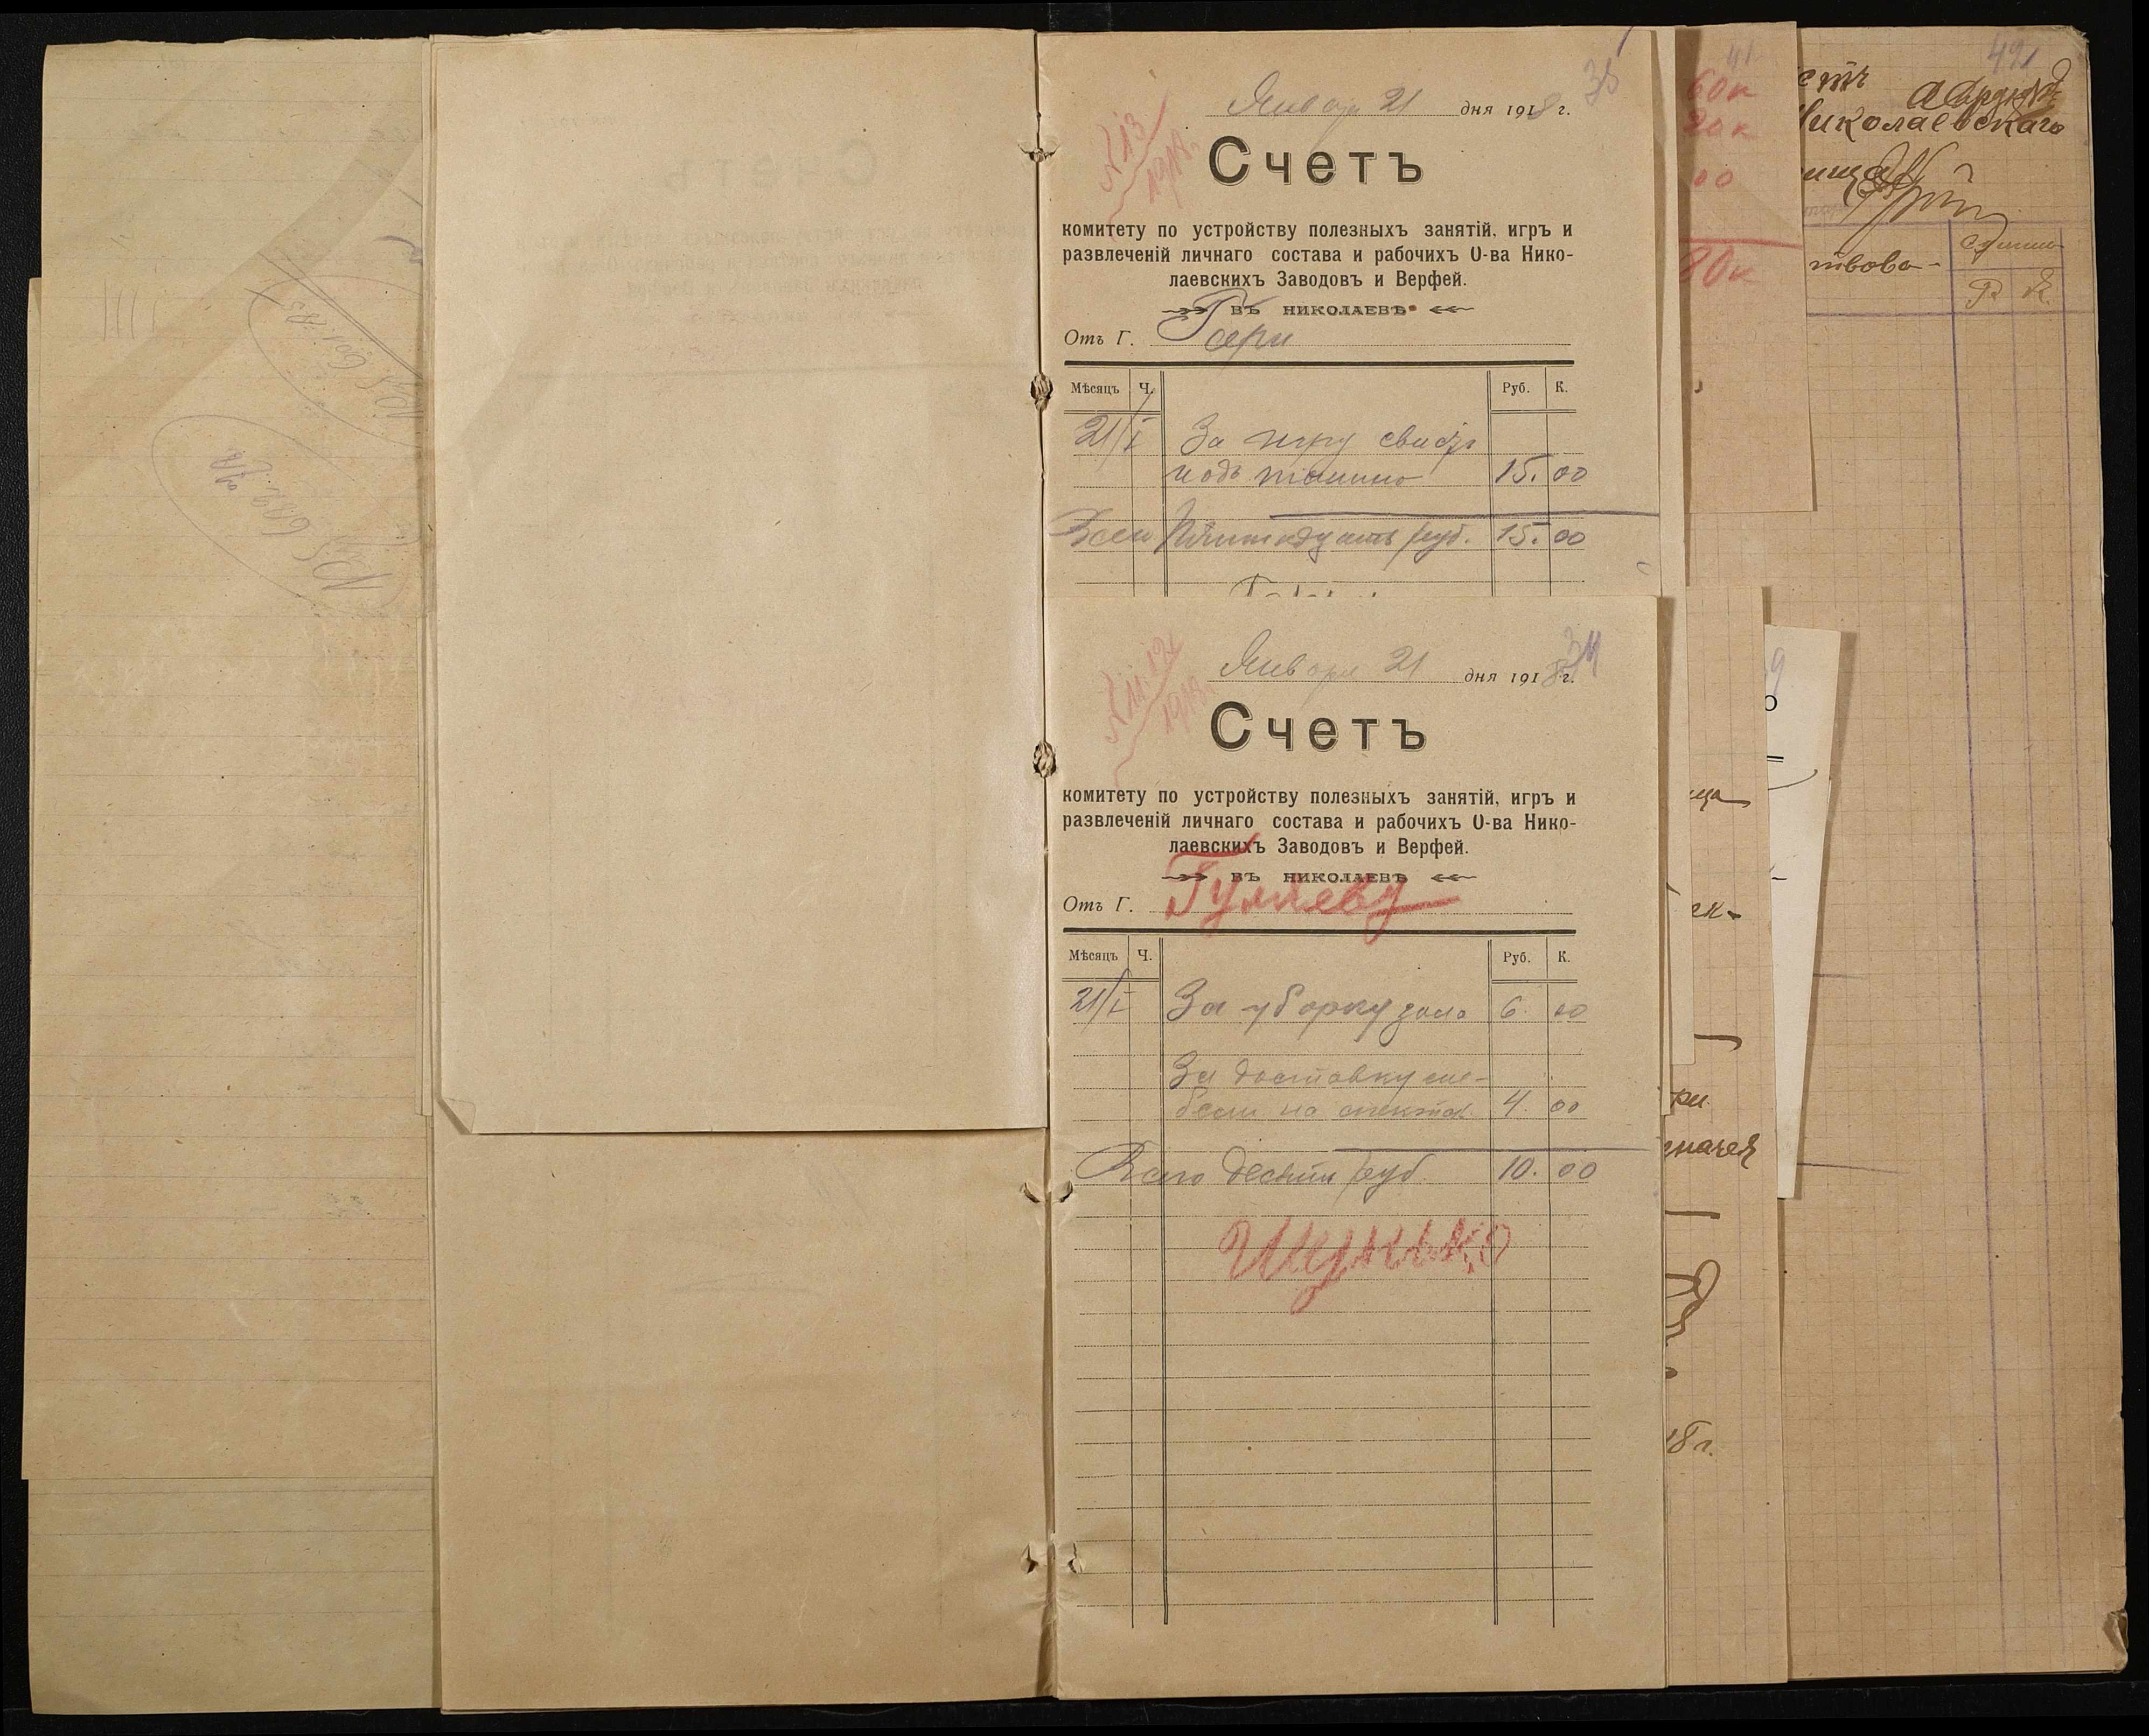 35
Января 21 дня 1918 г.
№ 13
1918 г.
Счетъ
комитету по устройству полезныхъ занятій, игръ и
развлеченій личнаго состава и рабочихъ О-ва Нико-
лаевскихъ Заводовъ и Верфей.
ВЪ НИКОЛАЕВѢ
Отъ Г. Гери
Мѣсяцъ Ч. Руб. К.
21/I За игру
подъ піанино 15. 00
Всего Пятнадцать руб. 15. 00
34
Января 21 дня 1918 г.
1918 г.
Счетъ
комитету по устройству полезныхъ занятій, игръ и
развлеченій личнаго состава и рабочихъ О-ва Нико-
лаевскихъ Заводовъ и Верфей.
ВЪ НИКОЛАЕВѢ
Отъ Г. Гуляеву
Мѣсяцъ Ч. Руб. К.
21/I За уборку зала 6. 00
За доставку ме-
бели на спектак. 4. 00
Всего десять руб. 10. 00
41
60к
20к
00
80к
49
Николаевскаго
ища
твова-
Р. К.
ица
ек-
ри
значея
18 г.